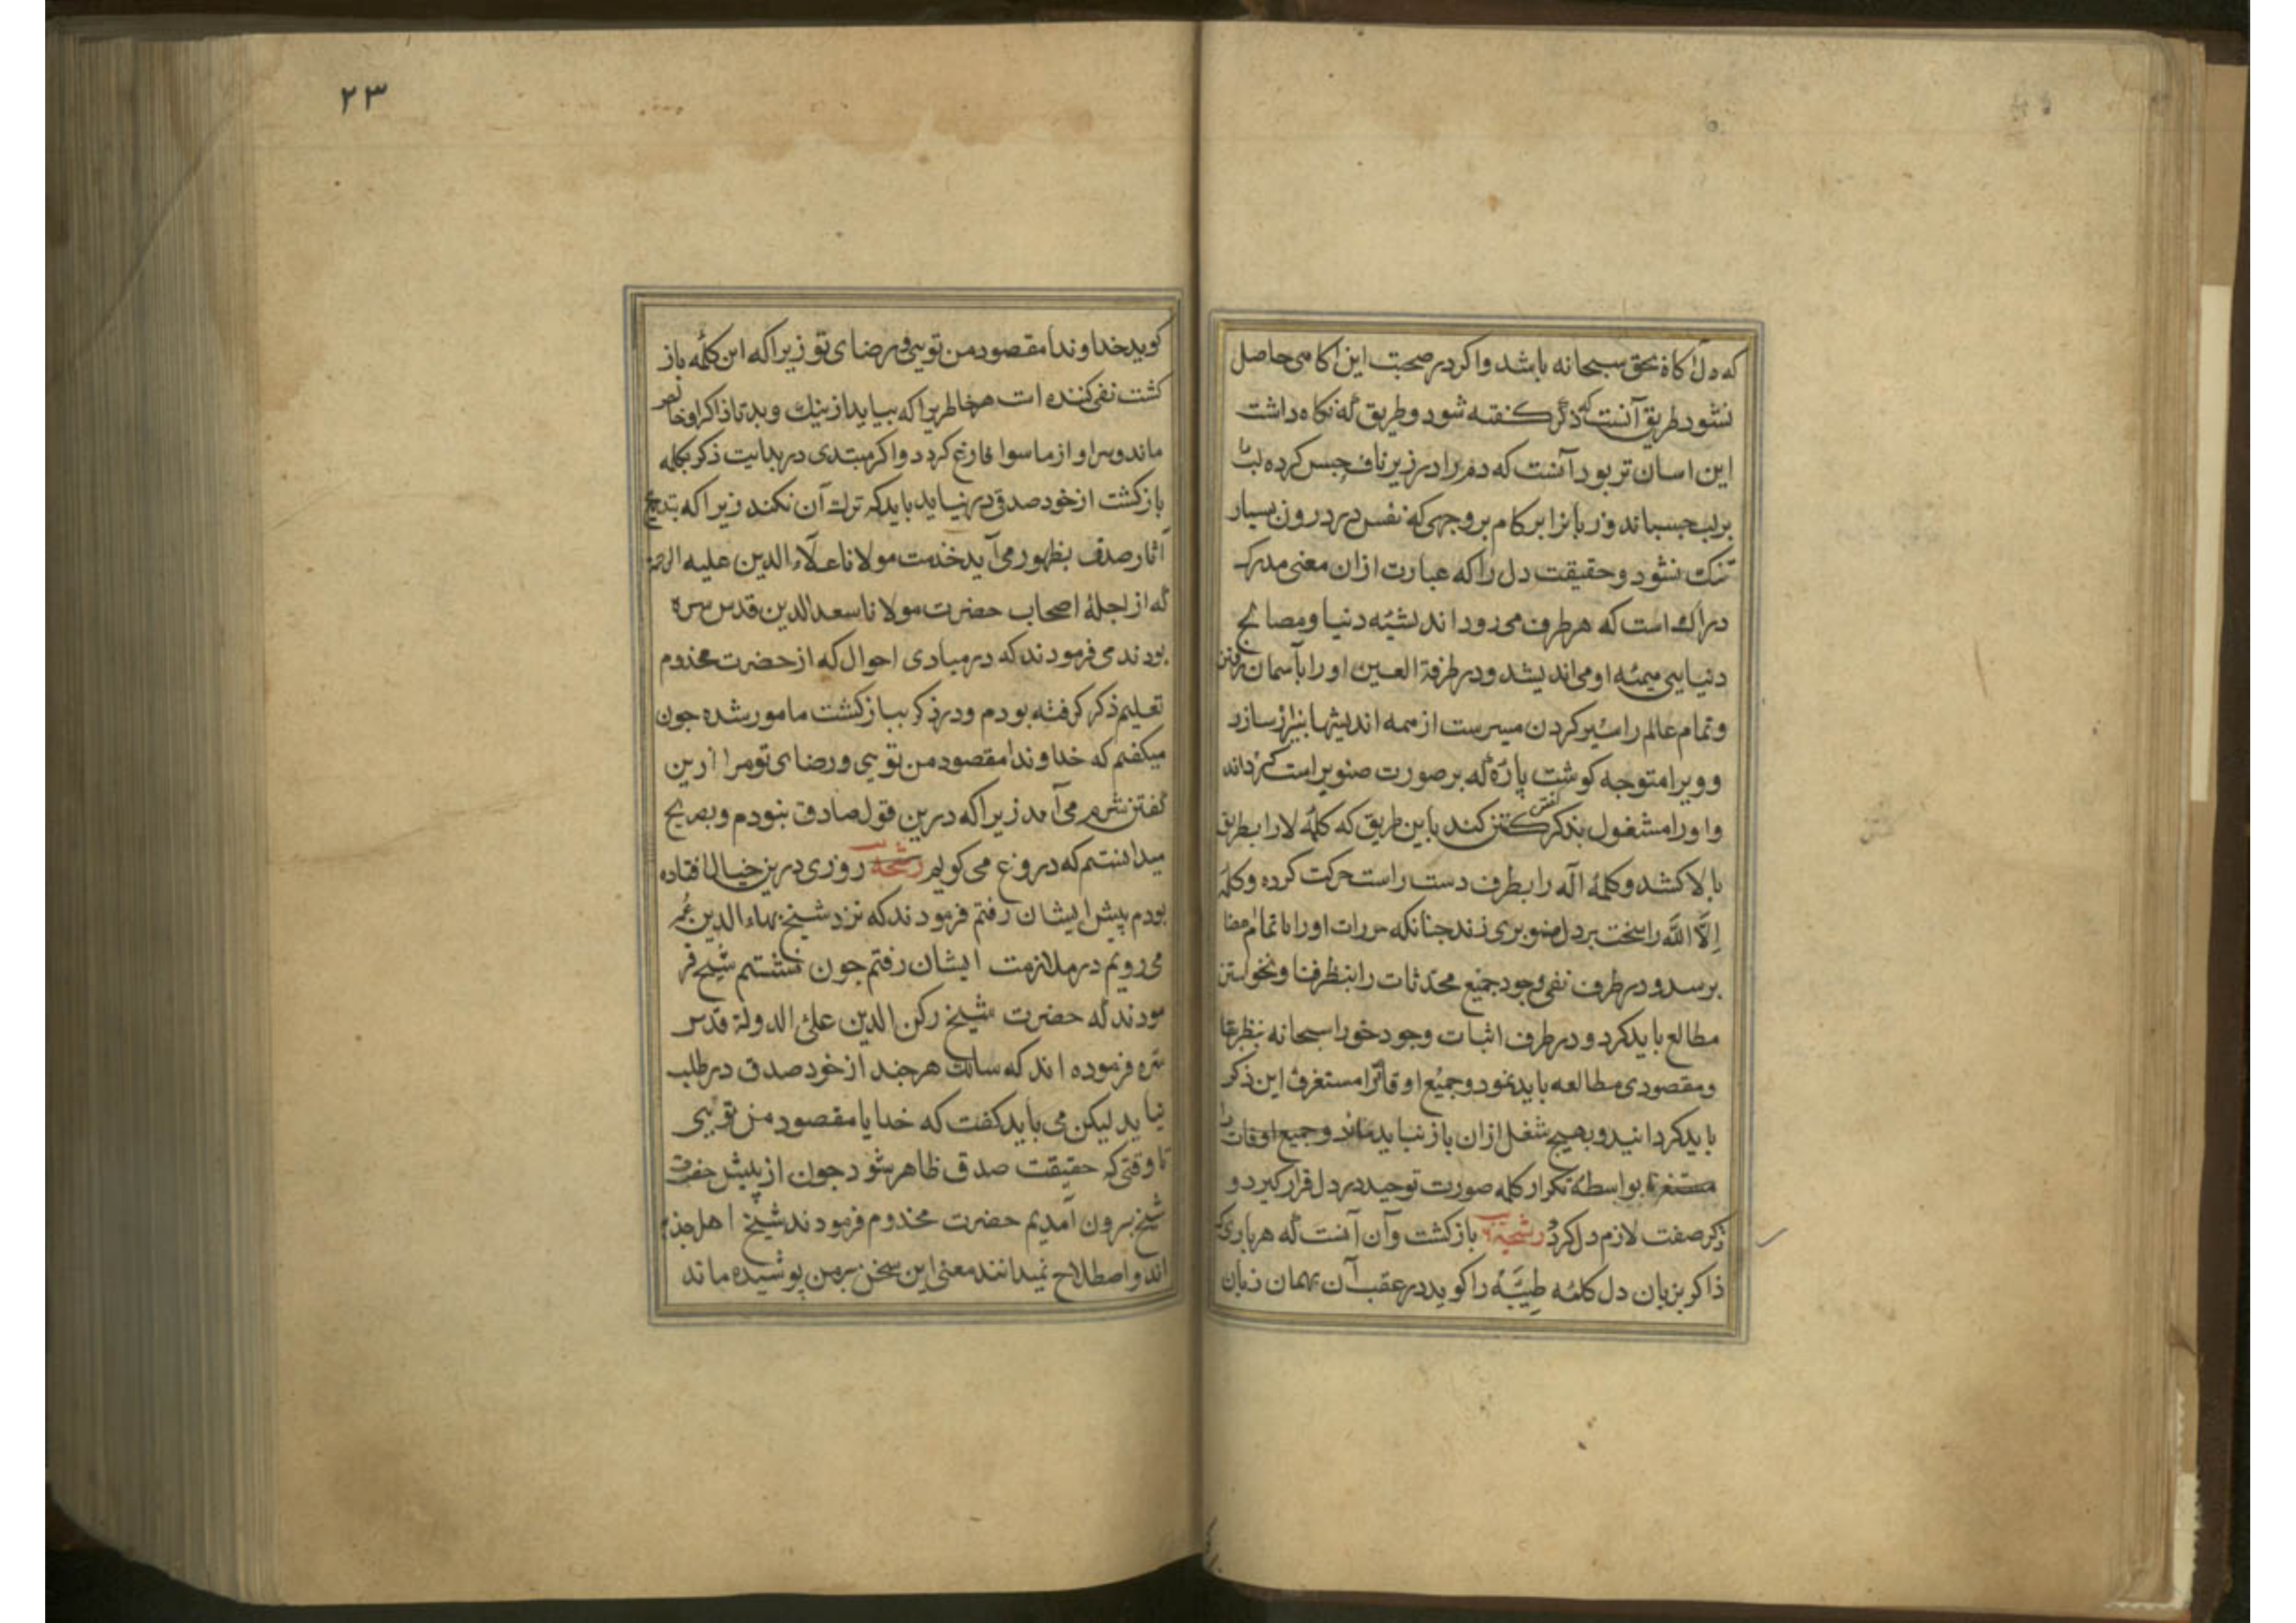 که دل آکاه بحق سبحانه باشد واکر در صحبت این آکاهی حاصل
نشود طریق آنست که ذکر کفته شود و طریق که نکاه داشت
این اسان تر بود آنست که دم را در زیر ناف حبس کرده لب را
بر لب چسباند و زبانرا بر کام بر وجهی که نفس در درون بسیار
تنک نشود و حقیقت دل را که عبارت ازان معنی مدرک
دراک است که هر طرف می رود اندیشئه دنیا و مصالح
دنیایی همئه او می اندیشد و در طرفة العین او را بآسمان رفتن
و تمام عالم را سیر کردن میسرست از همه اندیشها بیزار سازد
و ویرا متوجه کوشت پارۀ که بر صورت صنوبر است کرداند
و او را مشغول بذکر کفتن کند باین طریق که کلمۀ لا را بطریق
بالا کشد و کلمۀ اله را بطرف دست راست حرکت کرده و کلمۀ
اِلَّا اللّه را سخت بر دل صنوبری زند چنانکه حررات او را با تمام اعضا
برسد و در طرف نفی وجود جمیع محدثات را بنظر فنا و نخواستن
مطالع باید کرد و در طرف اثبات وجود خورا سبحانه بنظر بقا
و مقصودی مطالعه باید نمود و جمیع اوقاترا مستغرف این ذکر
باید کردانید و بهیچ شغل ازان باز نباید ماند و جمیع اوقات را
مستغرق بواسطۀ تکرار کلمه صورت توحید در دل قرار کیرد و
ذکر صفت لازم دل کردد رشحه باز کشت وآن آنست که هر باری که
ذاکر بزبان دل کلمئه طیّبَه را کوید در عقب آن بهمان زبان
۲۳
کوید خداوندا مقصود من تویی و رضای تو زیرا که این کلمه باز
کشت نفی کننده است هر خاطریرا که بیاید از نیک و بد تا ذاکر او خالص
ماند و سر او از ماسوا فارغ کردد و اکر مبتدی در بدایت ذکر بکلمه
بازکشت از خود صدق در نیابد باید که ترک آن نکند زیرا که بتدریج
آثار صدف بظهور می آید خدمت مولانا علاء الدین علیه الرحمه
که از اجلۀ اصحاب حضرت مولانا سعد الدین قدس سره
بودند می فرمودند که در مبادی احوال که از حضرت مخدوم
تعلیم ذکر کرفته بودم و در ذکر بباز کشت مامور شده چون
میکفتم که خداوندا مقصود من تویی و رضای تو مرا ازین
کفتن شرم می آمد زیرا که درین قول صادق نبودم و بصریح
میدانستم که دروغ می کویم رشحه روزی درین خیال افتاده
بودم پیش ایشان رفتم فرمودند که نزد شیخ بهاء الدین عمر
می رویم در ملازمت ایشان رفتم چون نشستم شیخ فر
مودند که حضرت شیخ رکن الدین علئ الدولة قدس
سره فرموده اند که سالک هر چند از خود صدق در طلب
نیابد لیکن می باید کفت که خدایا مقصود من تویی
تا وقتی که حقیقت صدق ظاهر شود چون از پیش حضرت
شیخ بیرون آمدیم حضرت مخدوم فرمودند شیخ اهل جذبه
اند و اصطلاح نمیدانند معنی این سخن بر من پوشیده ماند